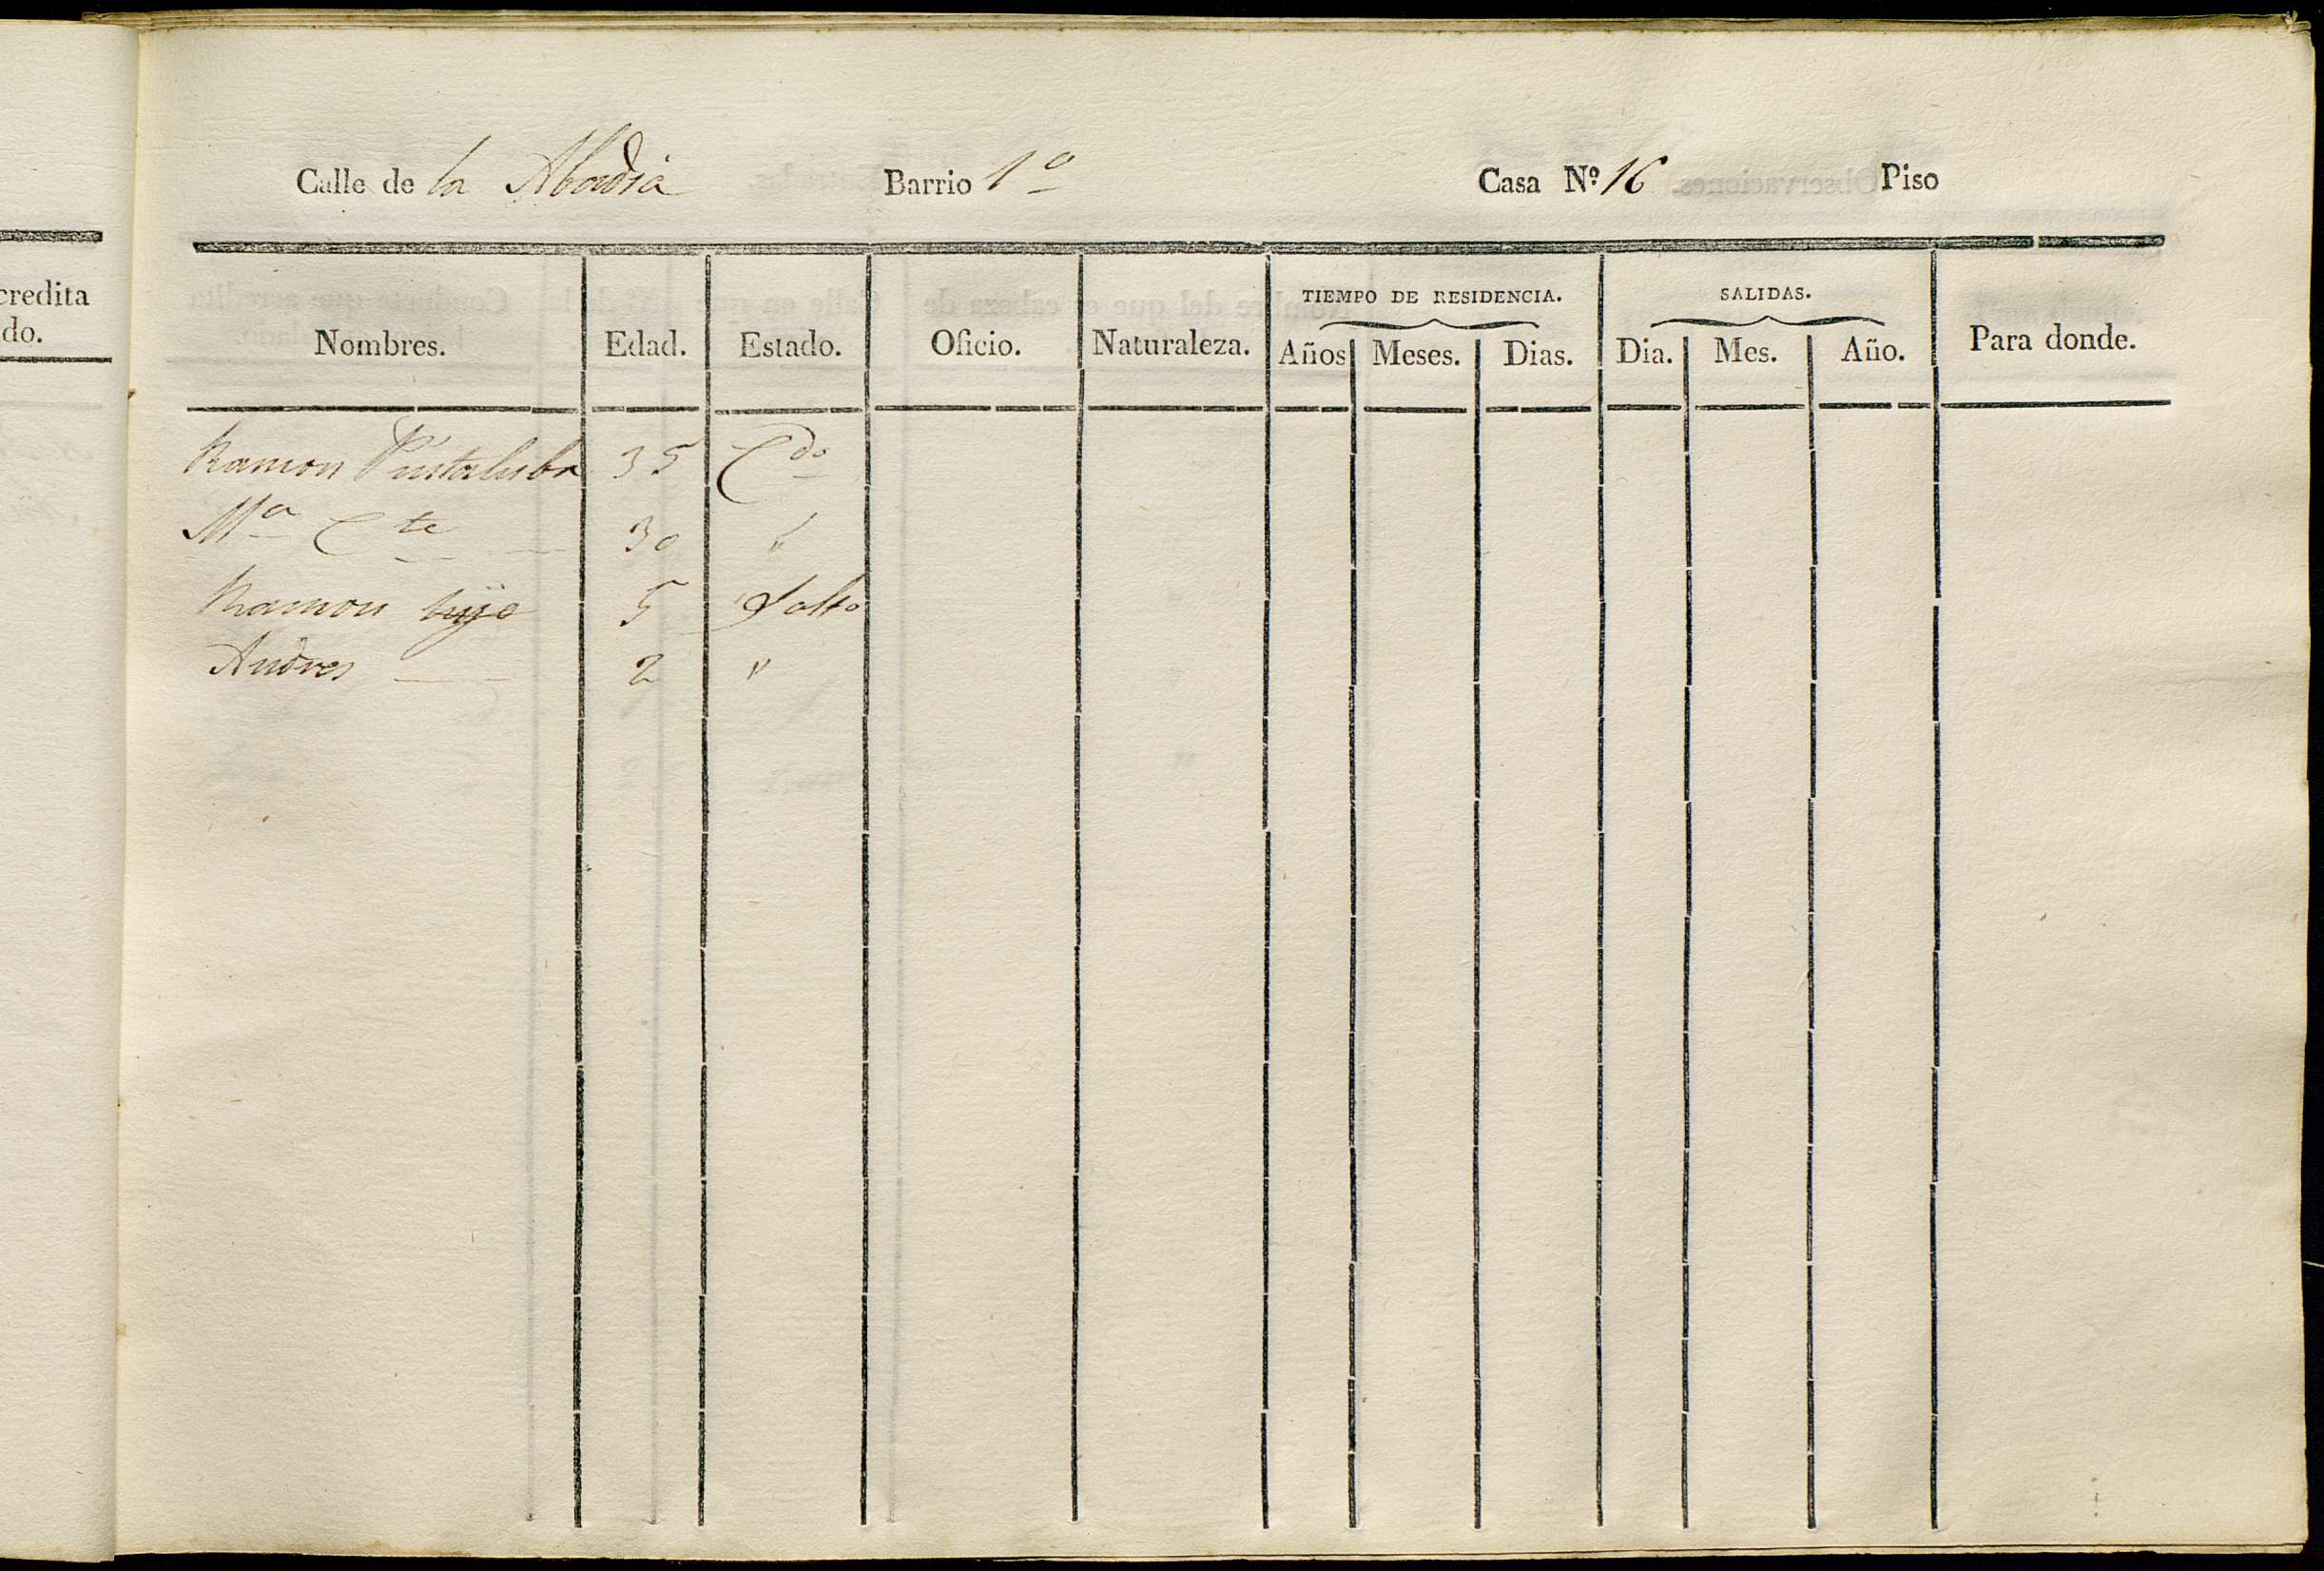 credita
do.
Calle de la Abadia Barrio 1º Casa Nº 16 Piso
TIEMPO DE RESIDENCIA. SALIDAS.
Nombres. Edad. Estado. Oficio. Naturaleza. Años Meses. Dias. Dia. Mes. Año. Para donde.
Ramon 35 Cdo
Mª Cte 30 "
Ramon hijo 5 Solto
Andres 2 "